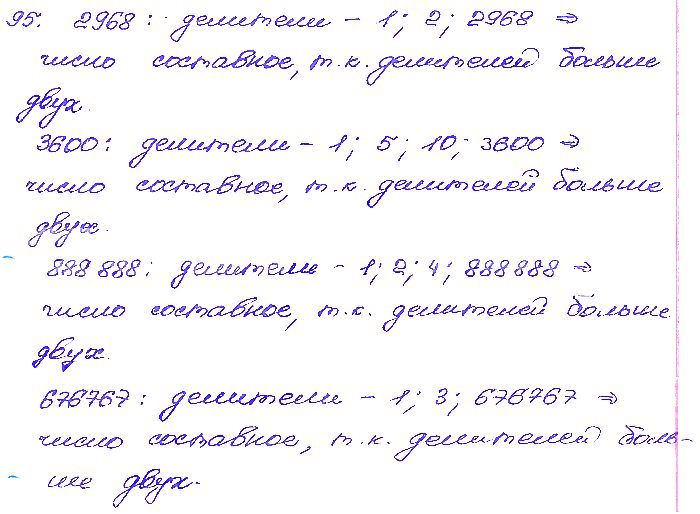 95. 2968: делители – 1; 2; 2968 ⇒
число составное, т.к. делителей больше
двух.
3600: делители – 1; 5; 10; 3600 ⇒
число составное, т.к. делителей больше
двух.
888 888: делители – 1; 2; 4; 888 888 ⇒
число составное, т.к. делителей больше
двух.
676767: делители – 1; 3; 676767 ⇒
число составное, т.к. делителей боль-
ше двух.